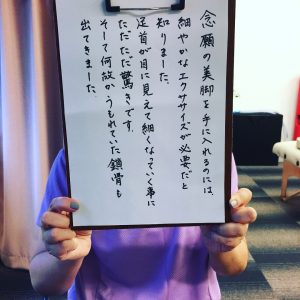 念願の美脚を手に入れるのには、
細やかなエクササイズが必要だと
知りました。
足首が目に見えて細くなっていく事に
ただただ驚きです。
そして何故かうもれていた鎖骨も
出てきました。